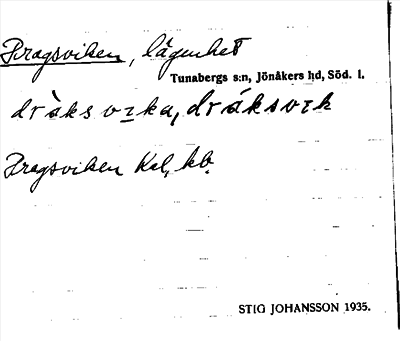 Dragsviken, lägenhet
Tunabergs s:n, Jönåkers hd, Söd. l.
dràks vɪka, dráksvɪk
Dragsviken Kal, kb.
STIG JOHANSSON 1935.